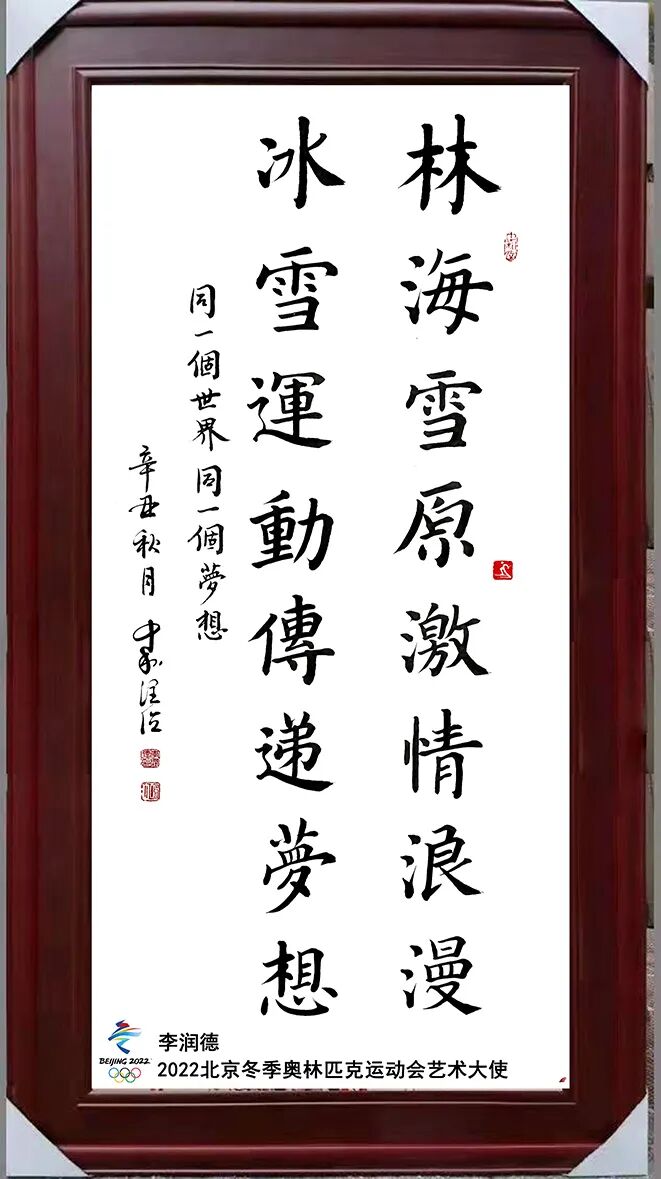 林海雪原激情浪漫
冰雪運動傳递夢想
同一個世界同一個夢想
辛丑秋月
BEIJING 2022
李润德
2022北京冬季奥林匹克运动会艺术大使